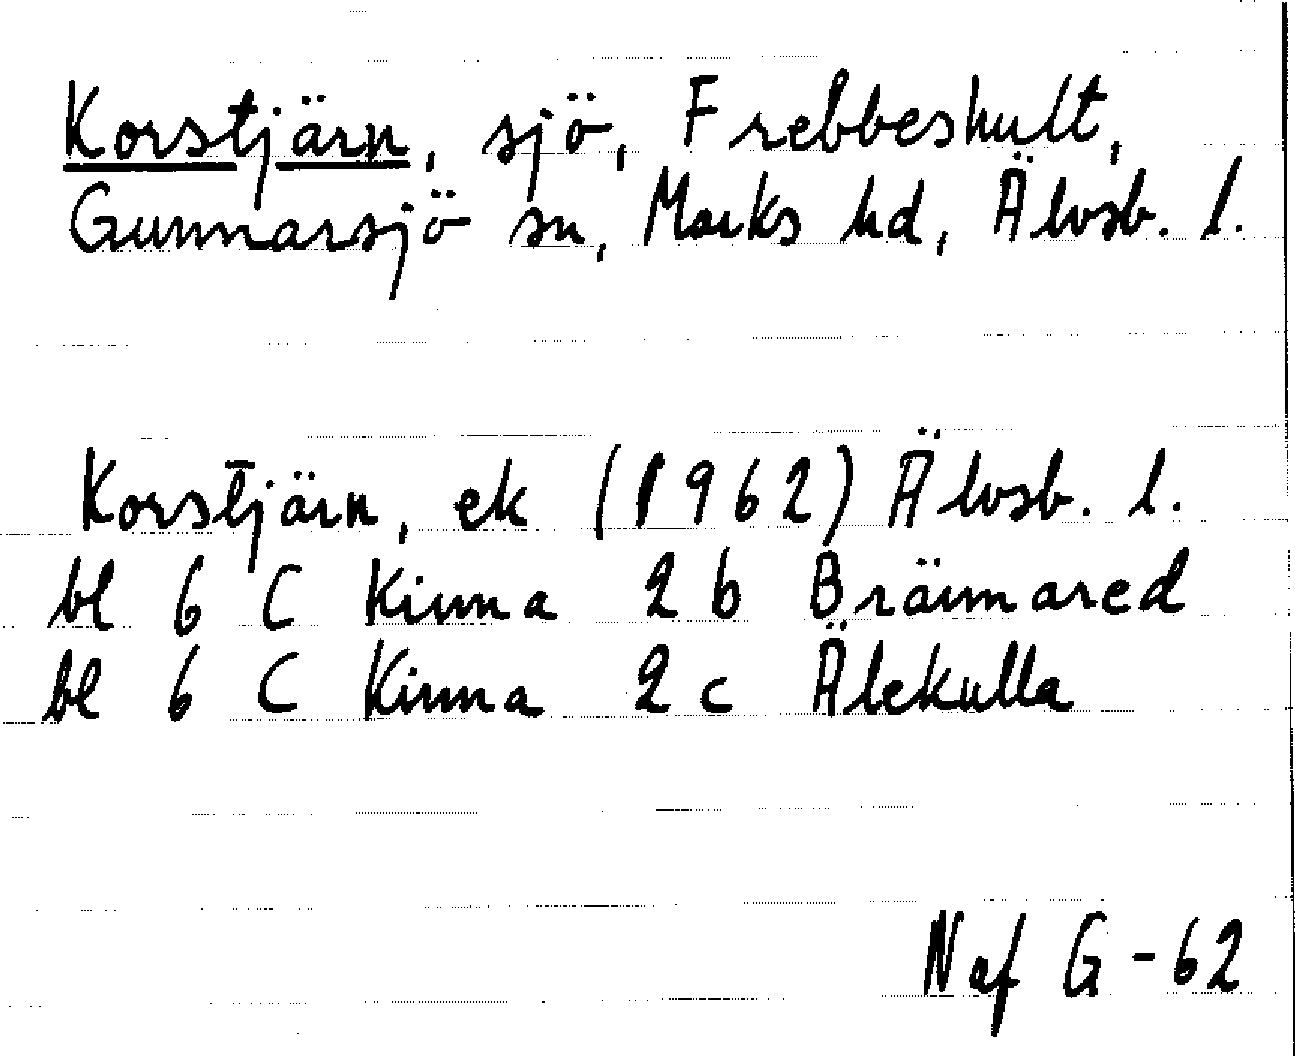 Korstjärn, sjö, Frebbeshult,
Gunnarsjö sn, Marks hd, Älvsb. l.
Korstjärn, ek (1962) Älvsb. l.
bl 6 C Kinna 2 b Brämared
bl 6 C Kinna 2 c Älekulla
Naf G-62